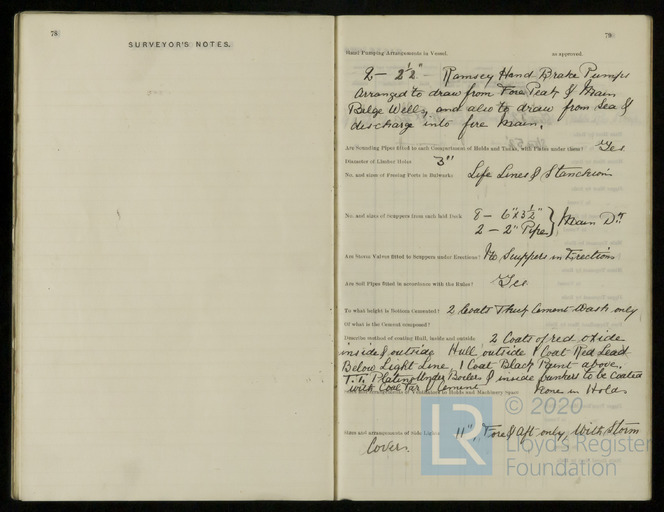 78
SURVEYOR'S NOTES.
79
Hand Pumping Arrangements in Vessel. as approved.
2 - 2½" - Ramsey Hand Brake Pumps
arranged to draw from Fore Peak & Main
Bilge Wells, and also to draw from Sea &
discharge into fire main.
Are Sounding Pipes fitted to each Compartment of Holds and Tanks, with Plates under them? Yes
Diameter of Limber Holes 3"
No. and sizes of Freeing Ports in Bulwarks Life Lines & Stanchions
No. and sizes of Scuppers from each laid Deck 8 - 6"x3½" } Main Dk
2 - 2" Pipe
Are Storm Valves fitted to Scuppers under Erections? No Scuppers in Erections
Are Soil Pipes fitted in accordance with the Rules? Yes
To what height is Bottom Cemented? 2 Coats Cement Wash only
Of what is the Cement composed?
Describe method of coating Hull, inside and outside. 2 Coats of red oxide
inside & outside Hull, outside 1 Coat Red Lead
Below Light Line, 1 Coat Black Paint above.
T.T. Plating Under Boilers & inside bunkers to be Coated
with Coal Tar & Cement None in Holds
Ventilators to Holds and Machinery Space
Sizes and arrangements of Side Lights 11", Fore & Aft only, With Storm
Covers.
© 2020
LR
Lloyd's Register
Foundation